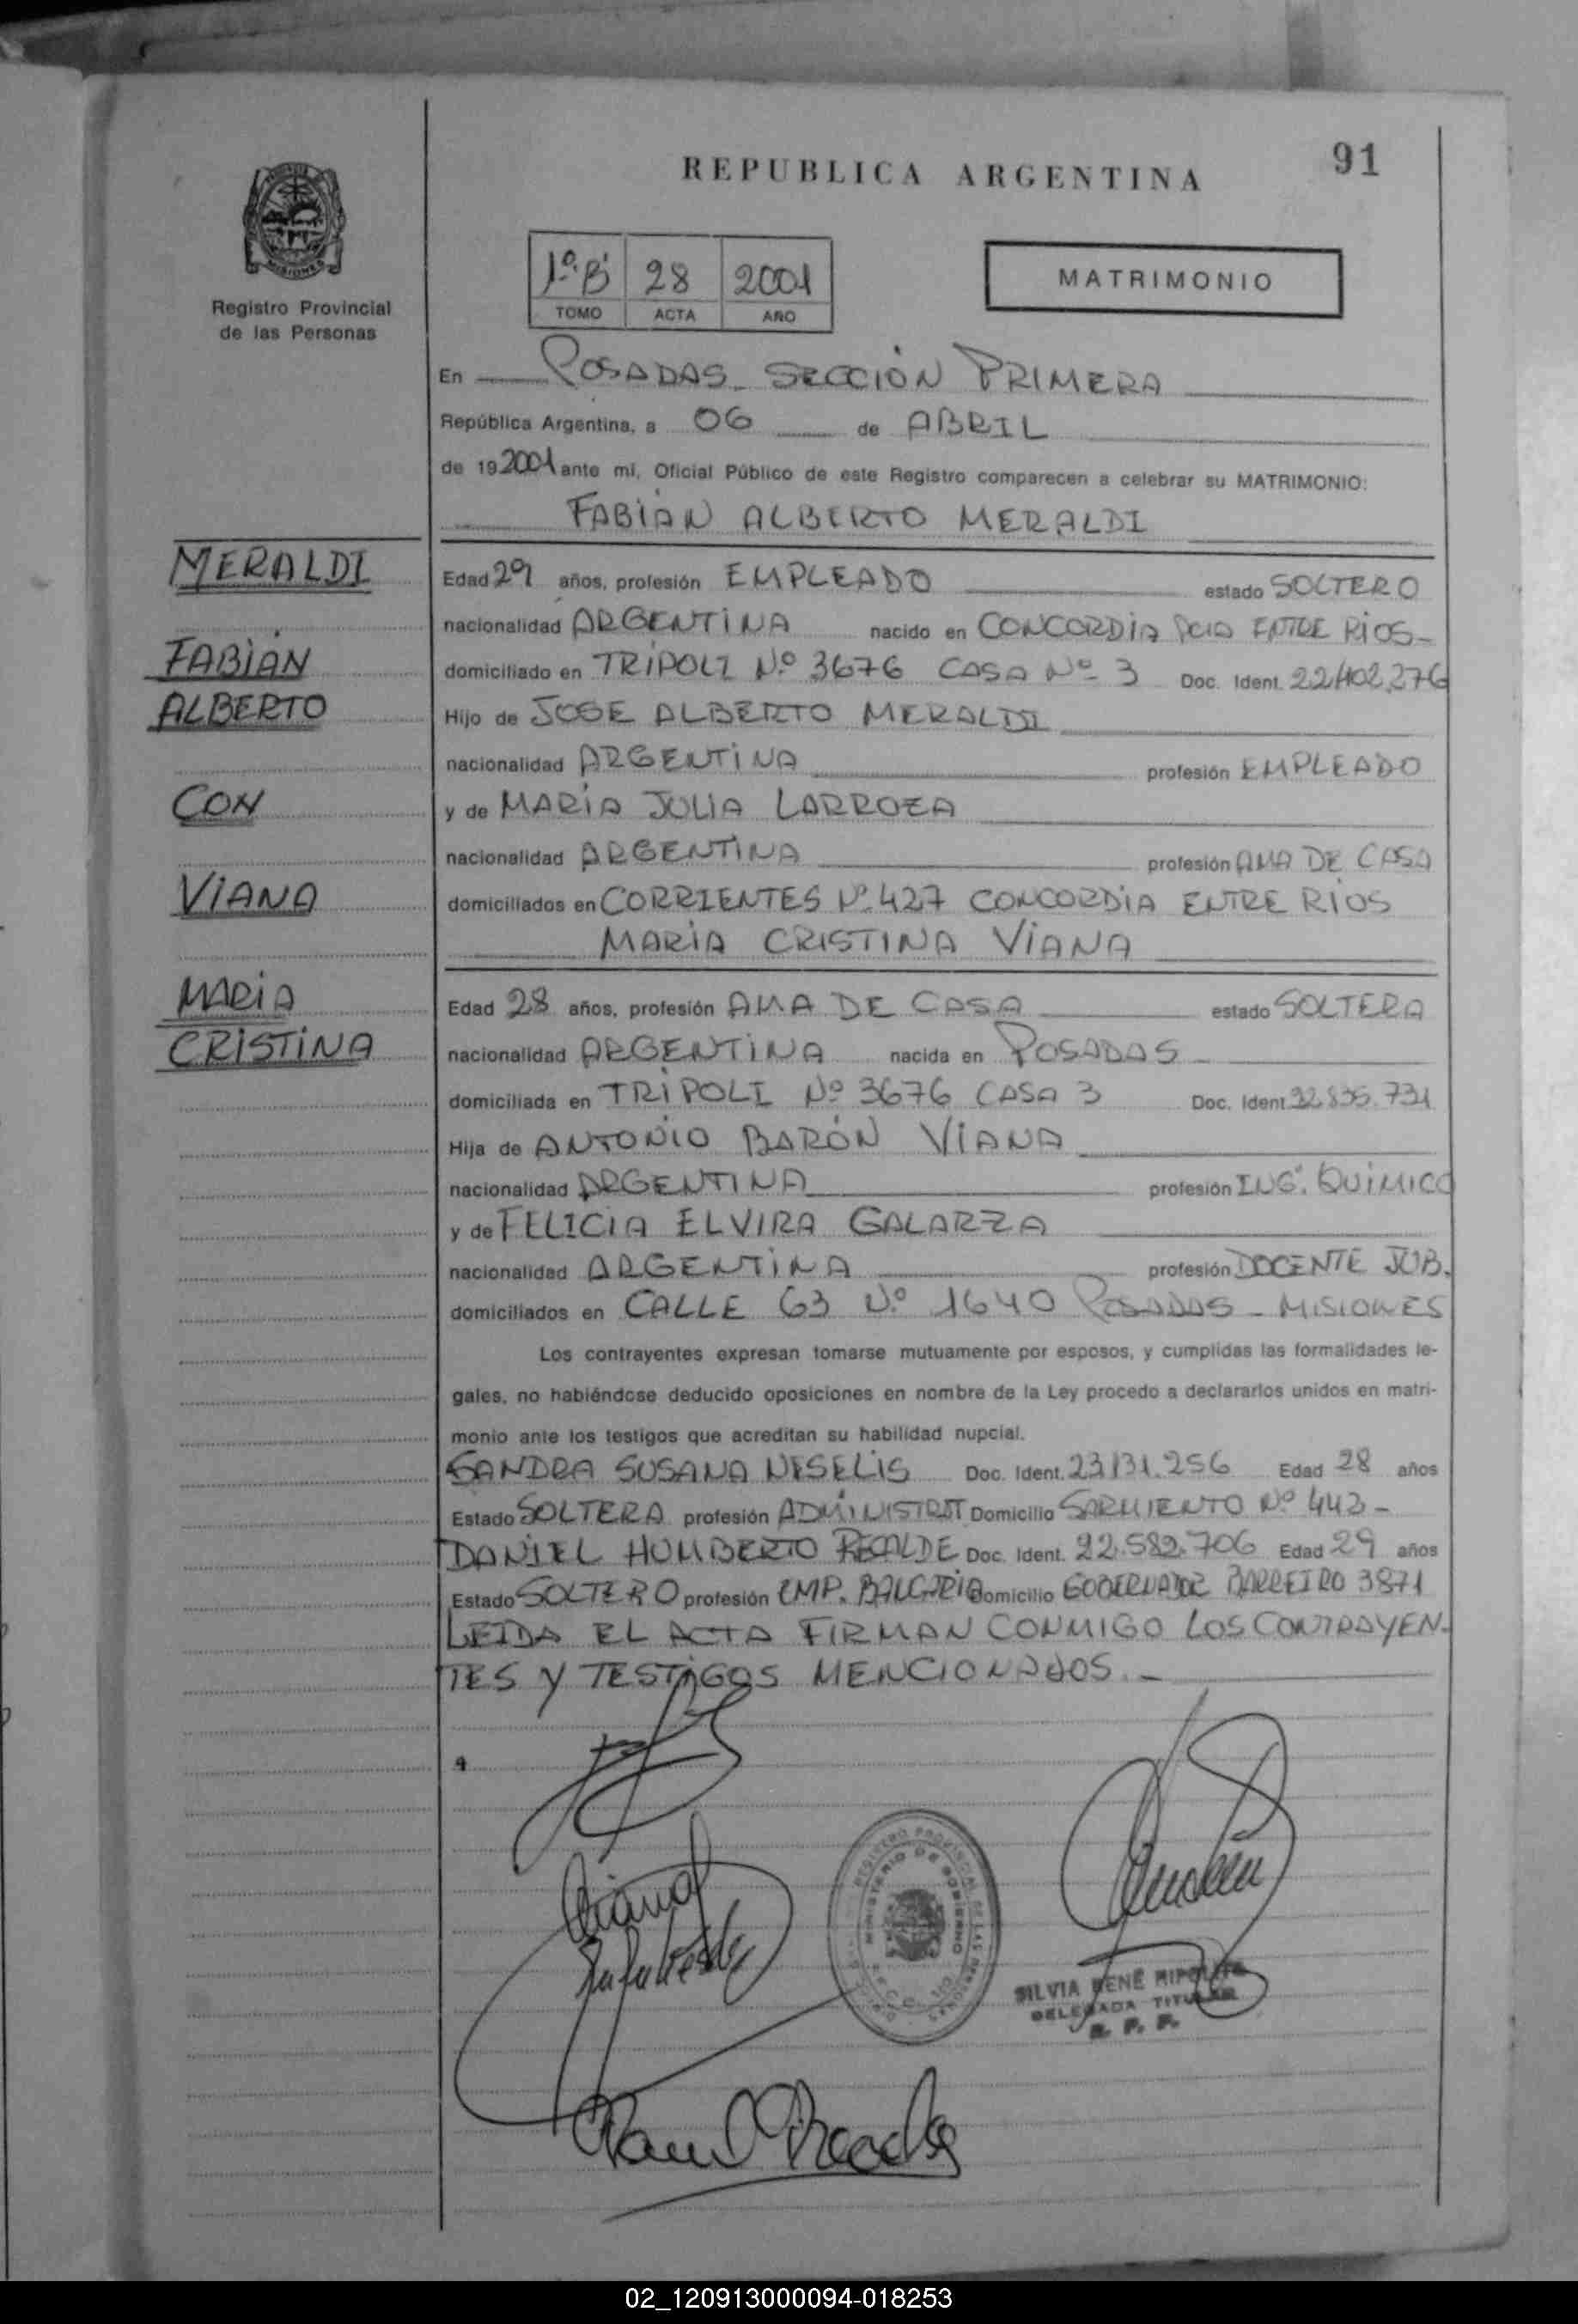 91
REPUBLICA ARGENTINA
MISIONES
Registro Provincial
de las Personas
1º B 28 2001
TOMO ACTA AÑO
MATRIMONIO
En POSADAS - SECCIÓN PRIMERA
República Argentina, a 06 de ABRIL
de 192001 ante mí, Oficial Público de este Registro comparecen a celebrar su MATRIMONIO:
FABIÁN ALBERTO MERALDI
MERALDI
FABIÁN
ALBERTO
CON
VIANA
MARÍA
CRISTINA
Edad 29 años, profesión EMPLEADO estado SOLTERO
nacionalidad ARGENTINA nacido en CONCORDIA PCIA ENTRE RÍOS-
domiciliado en TRÍPOLI Nº 3676 CASA Nº 3 Doc. Ident. 22.402.276
Hijo de JOSE ALBERTO MERALDI
nacionalidad ARGENTINA profesión EMPLEADO
y de MARÍA JULIA LARROZA
nacionalidad ARGENTINA profesión AMA DE CASA
domiciliados en CORRIENTES Nº 427 CONCORDIA ENTRE RÍOS
MARÍA CRISTINA VIANA
Edad 28 años, profesión AMA DE CASA estado SOLTERA
nacionalidad ARGENTINA nacida en POSADAS
domiciliada en TRÍPOLI Nº 3676 CASA 3 Doc. Ident
Hija de ANTONIO BARÓN VIANA
nacionalidad ARGENTINA profesión ING. QUÍMICO
y de FELICIA ELVIRA GALARZA
nacionalidad ARGENTINA profesión DOCENTE JUB.
domiciliados en CALLE 63 Nº 1640 POSADAS - MISIONES
Los contrayentes expresan tomarse mutuamente por esposos, y cumplidas las formalidades le-
gales, no habiéndose deducido oposiciones en nombre de la Ley procedo a declararlos unidos en matri-
monio ante los testigos que acreditan su habilidad nupcial.
SANDRA SUSANA NESELIS Doc. Ident. 23.131.256 Edad 28 años
Estado SOLTERA profesión ADMINISTRAT Domicilio SARMIENTO Nº 443 -
DANIEL HUMBERTO RECALDE Doc. Ident. 22.582.706 Edad 29 años
Estado SOLTERO profesión EMP. BANCARIO Domicilio GOBERNADOR BARREIRO 3871
LEIDA EL ACTA FIRMAN CONMIGO LOS CONTRAYEN-
TES Y TESTIGOS MENCIONADOS. -
Viana
REGISTRO PROVINCIAL DE LAS PERSONAS
MINISTERIO DE GOBIERNO
SILVIA RENÉ
DELEGADA TITULAR
R. P. P.
02_120913000094-018253